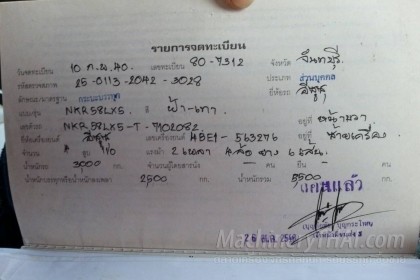 รายการจดทะเบียน
วันจดทะเบียน 10 ก.พ. 40 เลขทะเบียน 80-7312 จังหวัด จันทบุรี
รหัสตรวจสภาพ 25-0113-2042-3028 ประเภท ส่วนบุคคล
ลักษณะ/มาตรฐาน กระบะบรรทุก ยี่ห้อรถ อีซูซุ
แบบ/รุ่น NKR58LXS สี ฟ้า-เทา
เลขตัวรถ NKR58LXS-T-7102082 อยู่ที่ หน้าขวา
ยี่ห้อเครื่องยนต์ อีซูซุ เลขเครื่องยนต์ 4BE1-563276 อยู่ที่ ซ้ายเครื่อง
จำนวน สูบ แรงม้า 2 เพลา 4 ล้อ ยาง 6 เส้น
น้ำหนักรถ 3000 กก. จำนวนผู้โดยสารนั่ง - คน ยืน - คน
น้ำหนักบรรทุกหรือน้ำหนักลงเพลา 2500 กก. น้ำหนักรวม 5500 กก.
แล้ว
MachineryTHAI.com